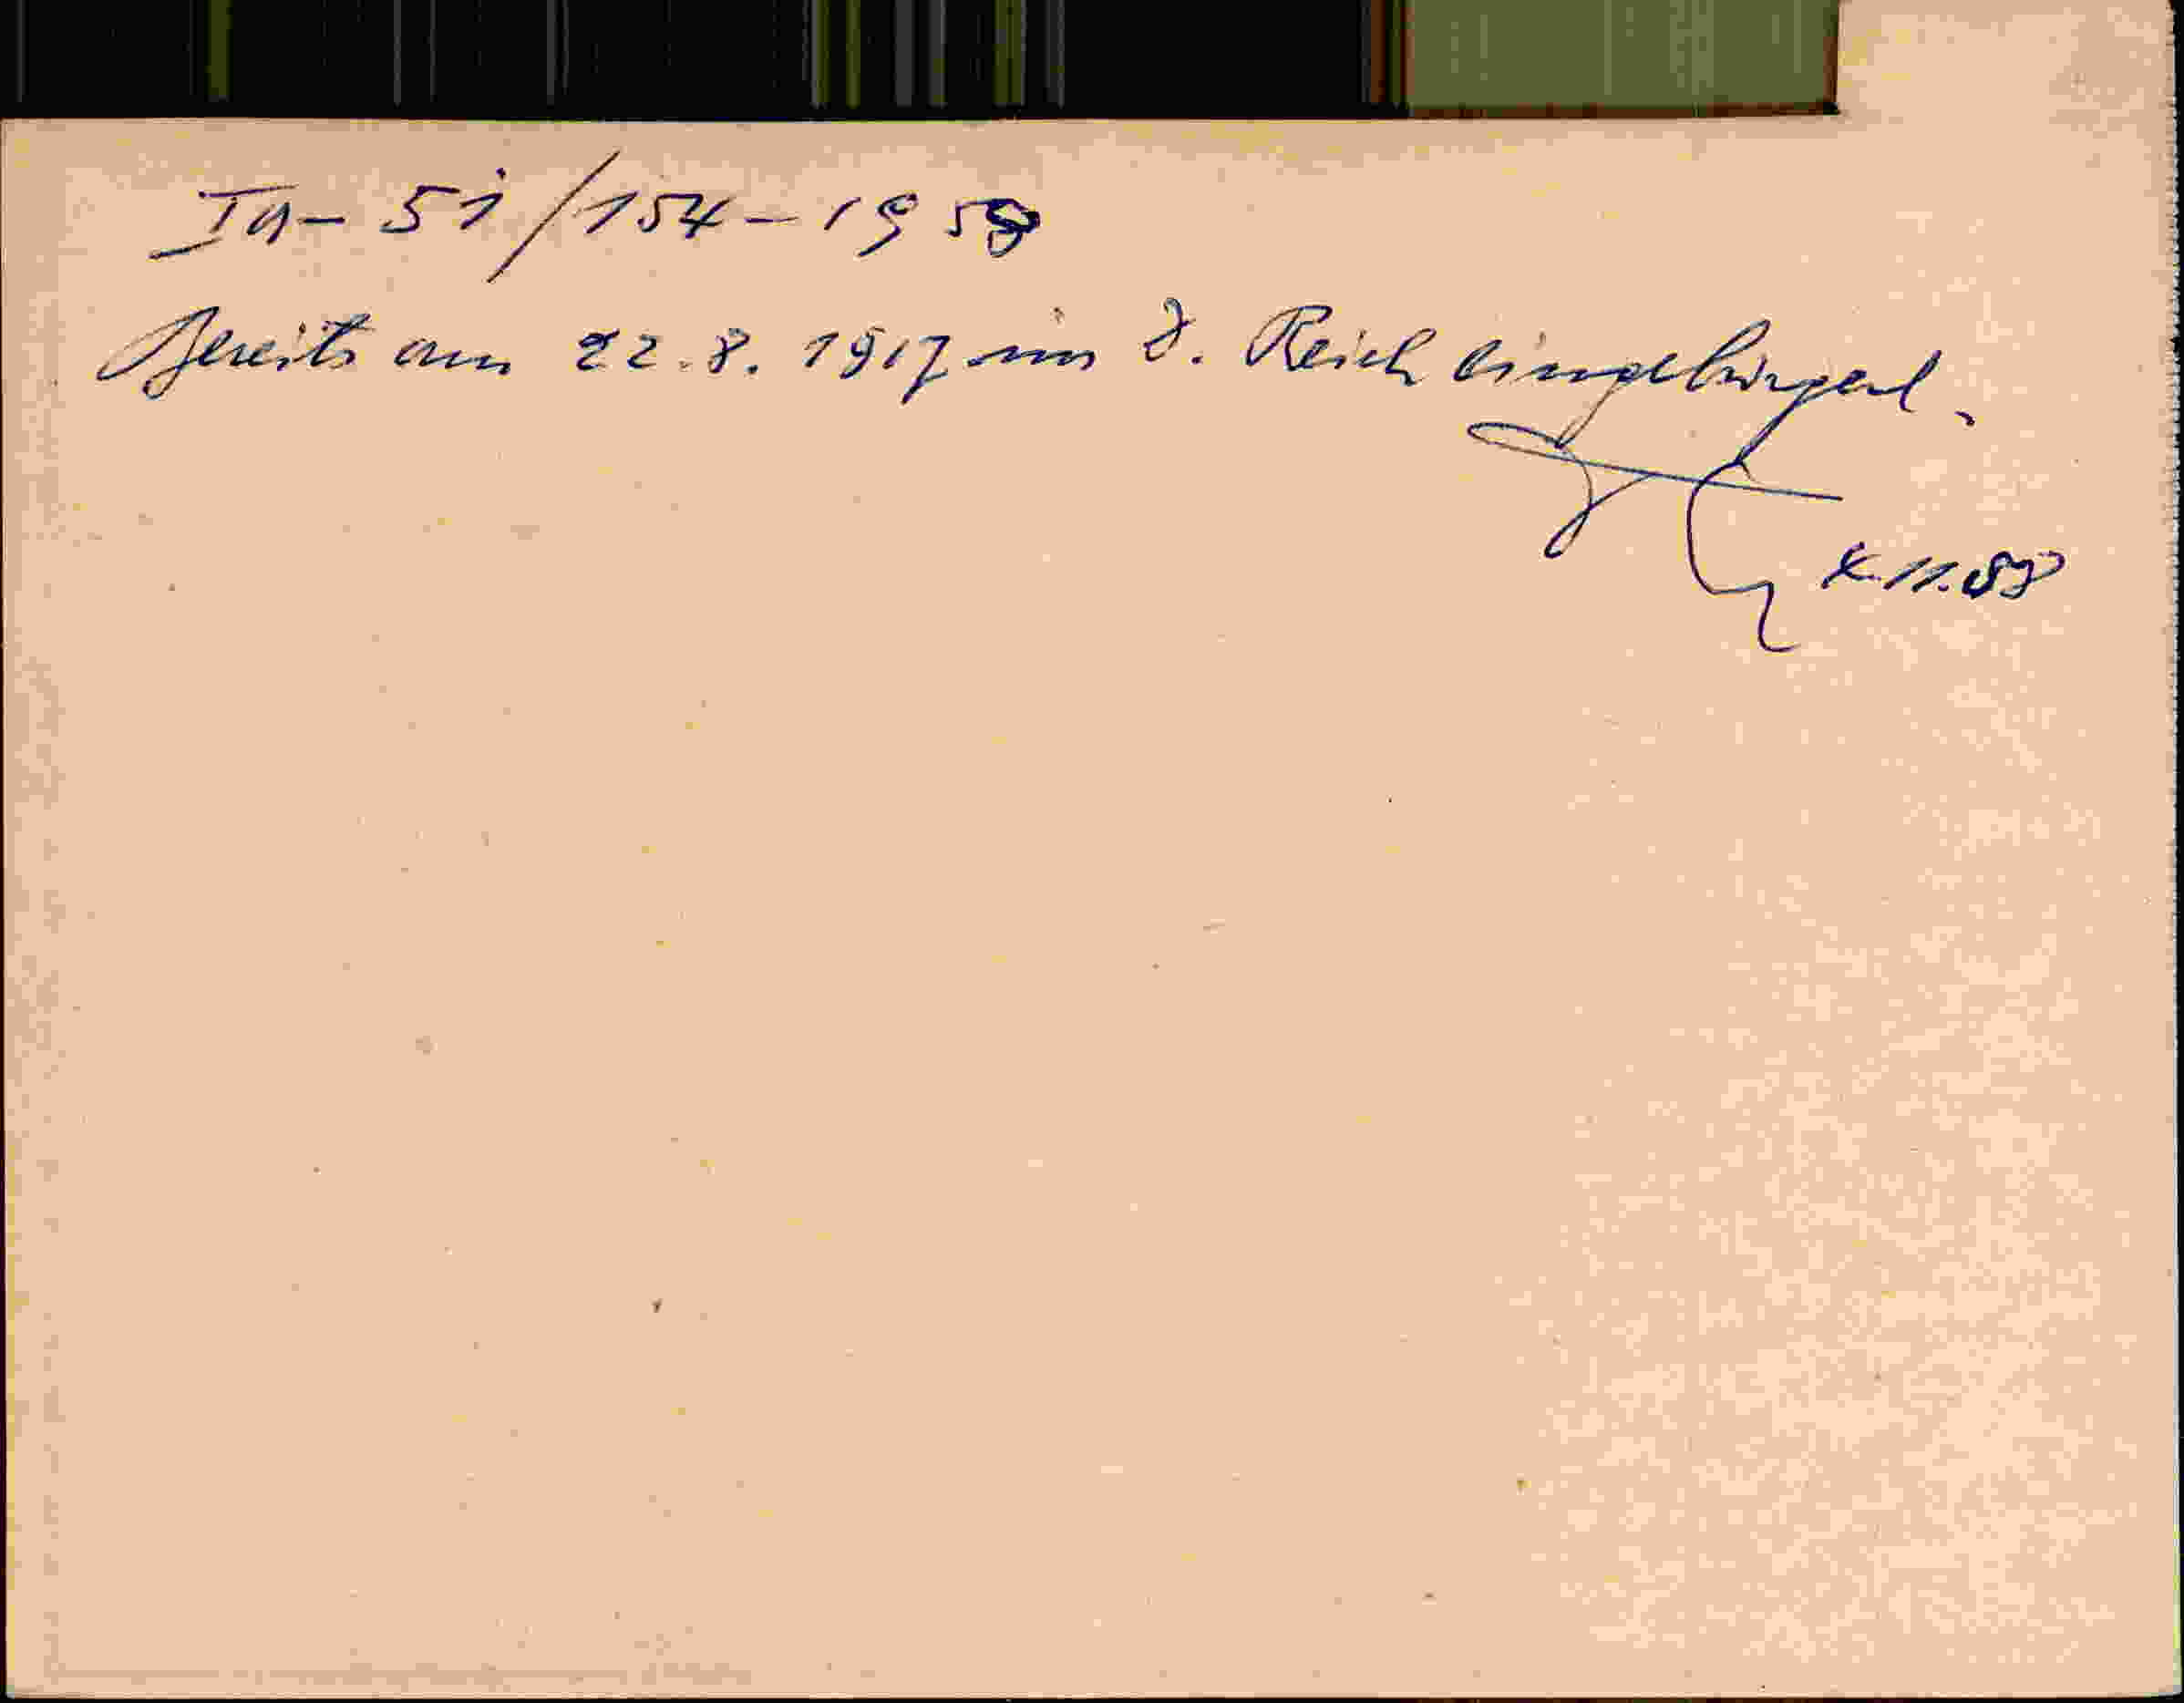 Ia- 51/154-1958
Bereits am 22.8.1917 im D. Reich eingebürgert.
11.58